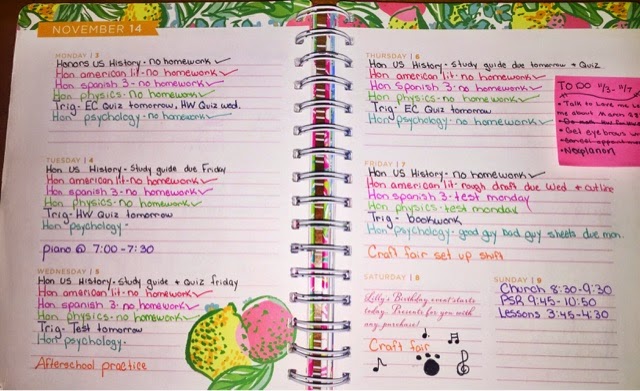 NOVEMBER 14
MONDAY | 3
Honors US History - no homework ✓
Hon american lit - no homework ✓
Hon spanish 3 - no homework ✓
Hon physics - no homework ✓
Trig - EC Quiz tomorrow, HW Quiz wed.
Hon psychology - no homework ✓
TUESDAY | 4
Hon US History - Study guide due Friday
Hon american lit - no homework ✓
Hon spanish 3 - no homework ✓
Hon physics - no homework ✓
Trig - HW Quiz tomorrow
Hon psychology -
piano @ 7:00 - 7:30
WEDNESDAY | 5
Hon US History - Study guide + Quiz friday
Hon american lit - no homework ✓
Hon spanish 3 - no homework ✓
Hon physics - no homework ✓
Trig - Test tomorrow
Hon psychology -
Afterschool practice
THURSDAY | 6
Hon US History - Study guide due tomorrow + Quiz
Hon american lit - no homework ✓
Hon Spanish 3 - no homework ✓
Hon physics - no homework ✓
Trig - EC Quiz tomorrow
Hon psychology - no homework ✓
TO DO 11/3 - 11/7
• Talk to
me about march
• Get eyebrows
• Nexplanon
FRIDAY | 7
Hon US History - no homework ✓
Hon american lit - rough draft due Wed + outline
Hon spanish 3 - test monday
Hon physics - test monday
Trig - bookwork
Hon psychology - good guy bad guy sheets due mon.
Craft fair set up shift
SATURDAY | 8
Lilly's Birthday event starts
today. Presents for you with
any purchase!
Craft fair
SUNDAY | 9
Church 8:30 - 9:30
PSR 9:45 - 10:50
Lessons 3:45 - 4:30